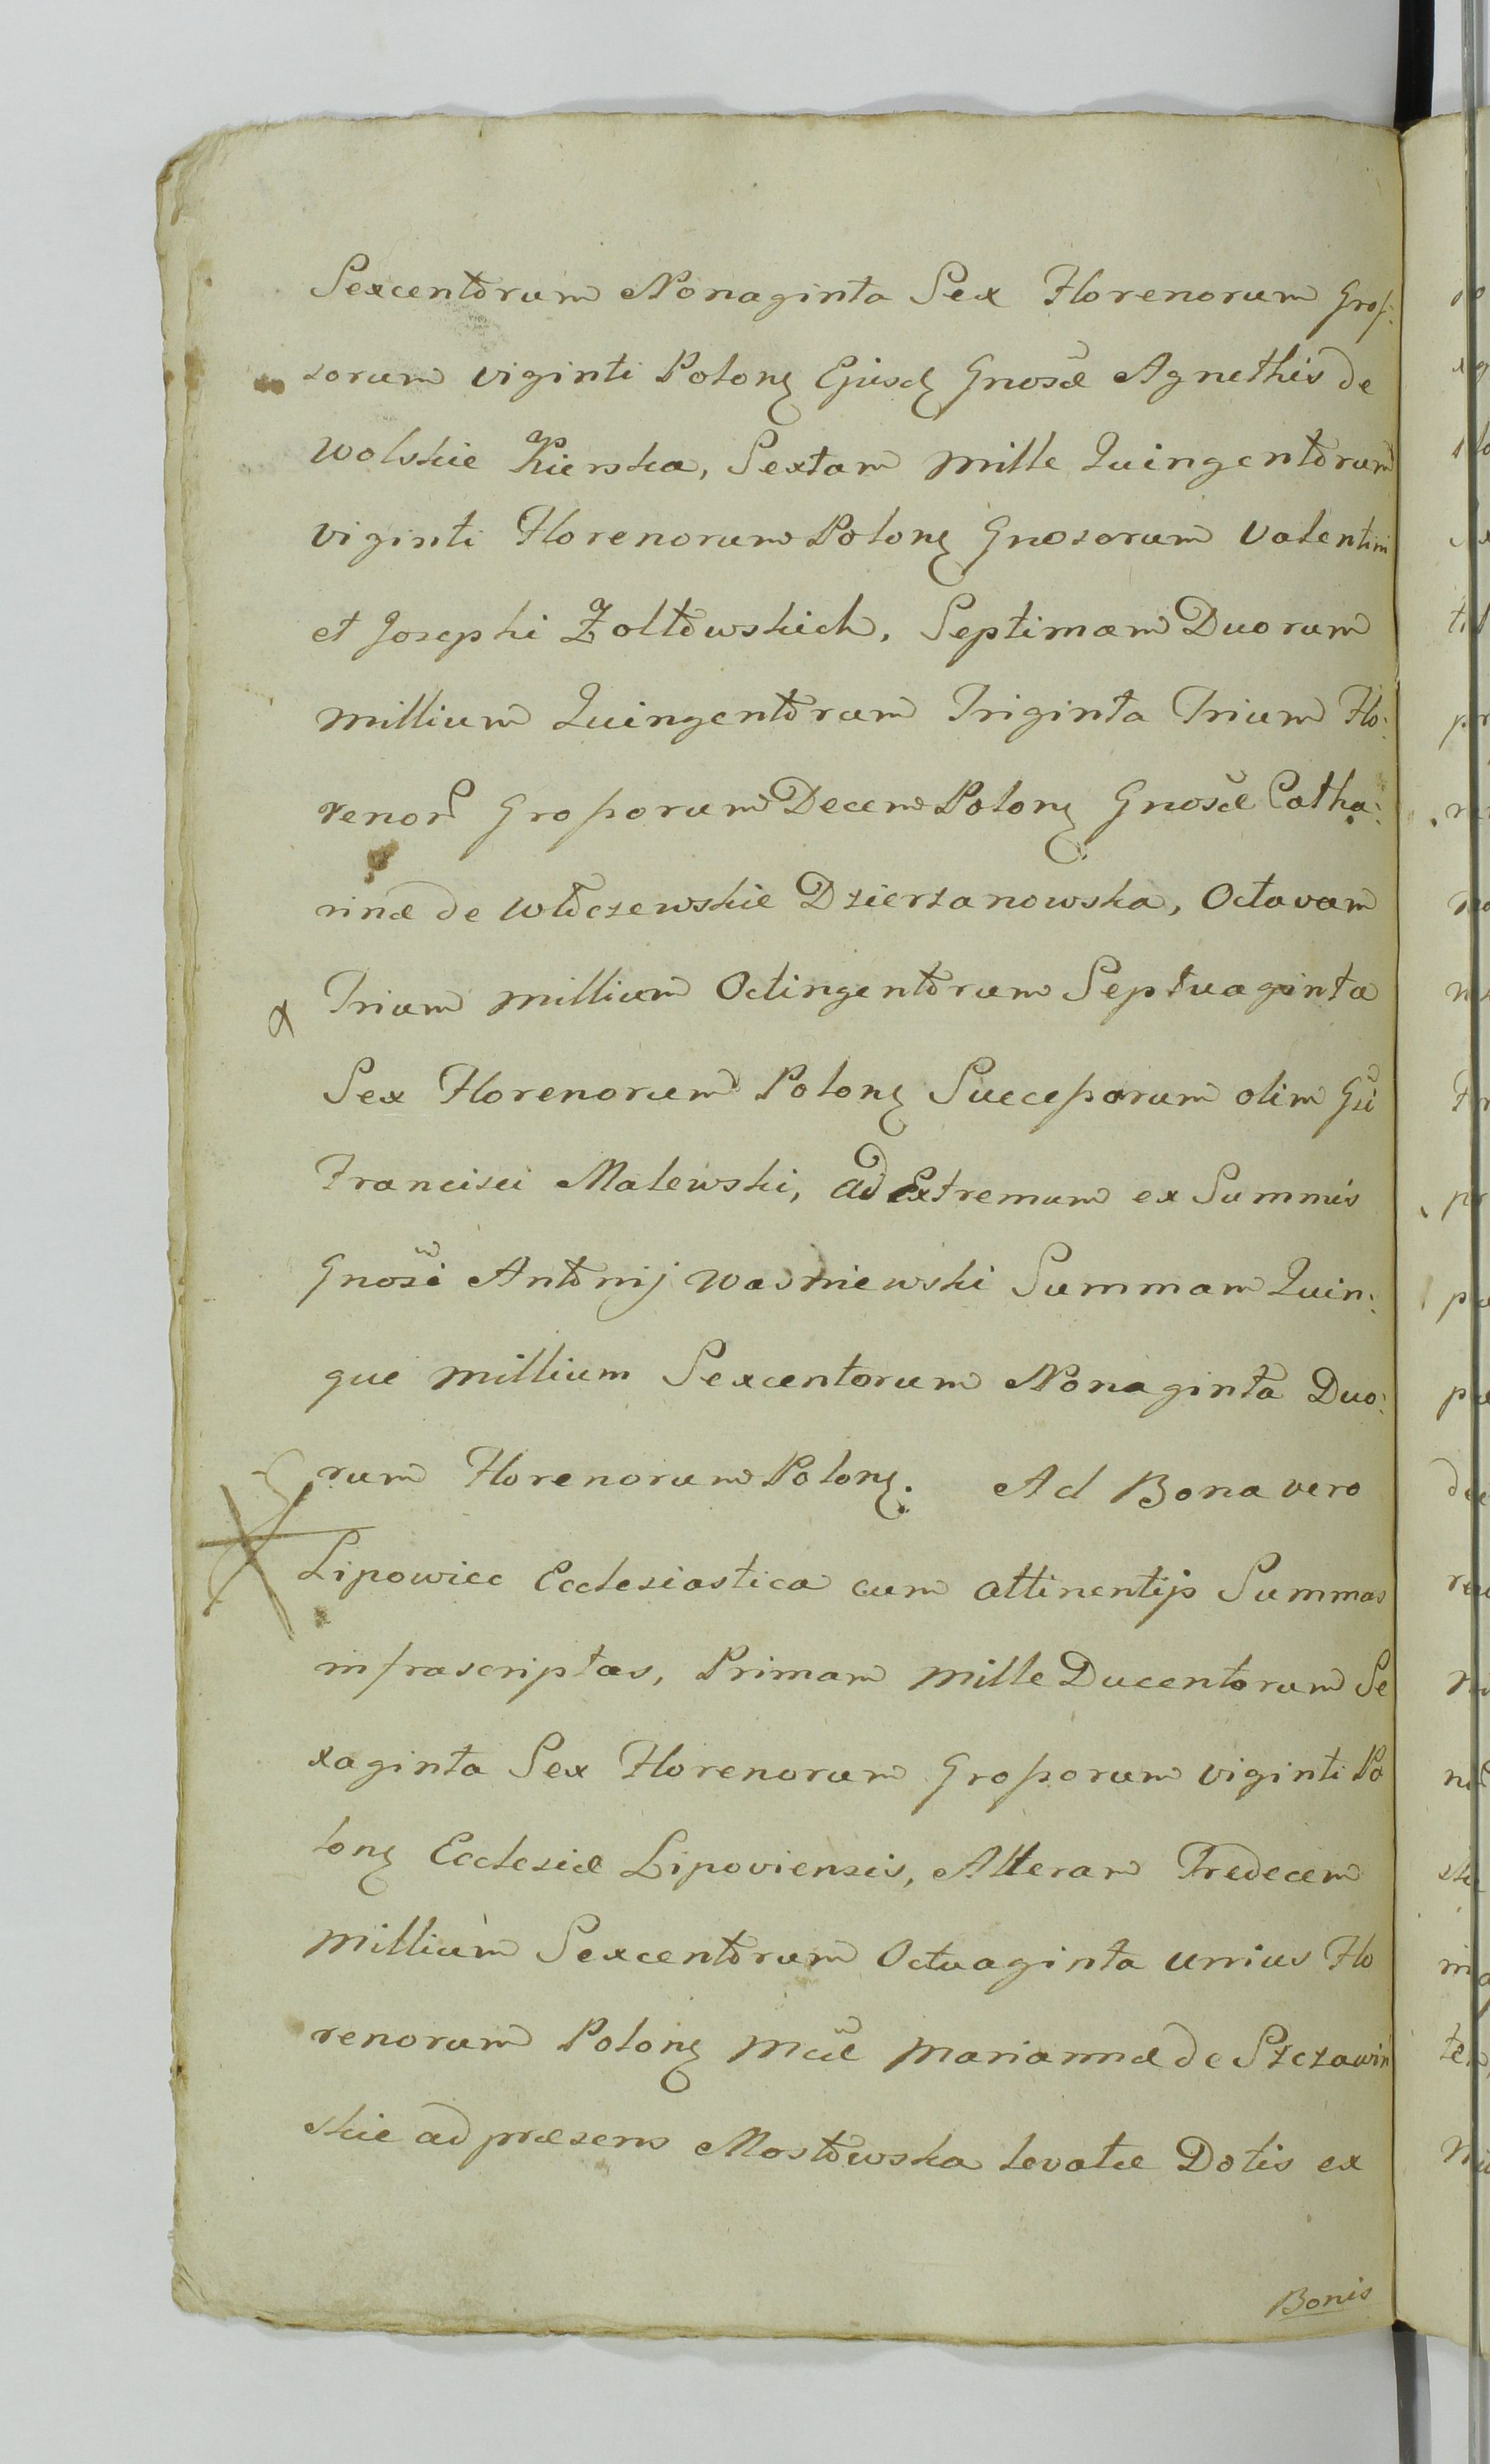 Sexcentorum Nonaginta Sex Florenorum Gros:
sorum viginti Polonꝫ Ejusdꝫ Gnosæ Agnethis de
Wolskie Kierska, Sextam mille Quingentorum
viginti Florenorum Polonꝫ Gnosorum Valentini
et Josephi Zołtowskich, Septimam Duorum
millium Quingentorum Triginta Trium Flo:
renor Grossorum Decem Polonꝫ Gnosæ Catha:
rinæ de Włoczewskie Dzierzanowska, Octavam
x Trium millium Octingentorum Septuaginta
Sex Florenorum Polonꝫ Successorum olim Gsi
Francisci Malewski, ad Extremum ex Summis
Gnosi Antonij Wasniewski Summam Quin:
que millium Sexcentorum Nonaginta Duo:
rum Florenorum Polonꝫ. Ad Bona vero
Lipowiec Ecclesiastica cum attinentijs Summas
infrascriptas, Primam mille Ducentorum Se
xaginta Sex Florenorum Grossorum viginti Po
lonꝫ Ecclesiæ Lipoviensis, Alteram Tredecem
millium Sexcentorum Octuaginta unius Flo
renorum Polonꝫ Mcæ Mariannæ de Szczawin
skie ad præsens Mostowska levatæ Dotis ex
Bonis